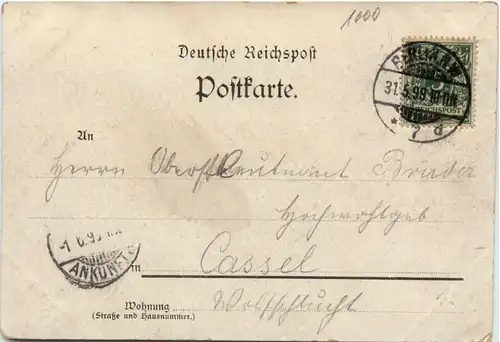 1000
Deutsche Reichspost
Postkarte.
BERLIN
31.5.99.10
* 7 d
REICHSPOST
An
Herrn Oberstleutnant
Hochwohlgeb
-1 6.99
ANKUNFT
in Cassel
Wohnung Wolfsschlucht
(Straße und Hausnummer.)